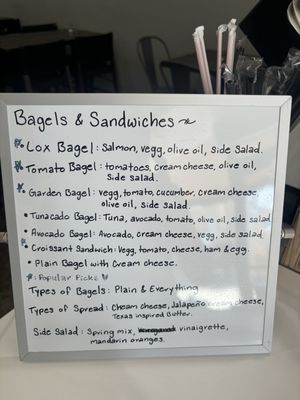 Bagels & Sandwiches ~
* Lox Bagel: Salmon, vegg, olive oil, side salad.
* Tomato Bagel: tomatoes, cream cheese, olive oil,
side salad.
* Garden Bagel: vegg, tomato, cucumber, cream cheese,
olive oil, side salad.
• Tunacado Bagel: Tuna, avocado, tomato, olive oil, side salad
• Avocado Bagel: Avocado, cream cheese, vegg, side salad
* Croissant Sandwich: Vegg, tomato, cheese, ham & egg.
• Plain Bagel with Cream cheese.
*: Popular Picks
Types of Bagels: Plain & Everything
Types of Spread: Cheam cheese, Jalapeño cream cheese,
Texas inspired Butter.
Side Salad: Spring mix, vinaigrette,
mandarin oranges.